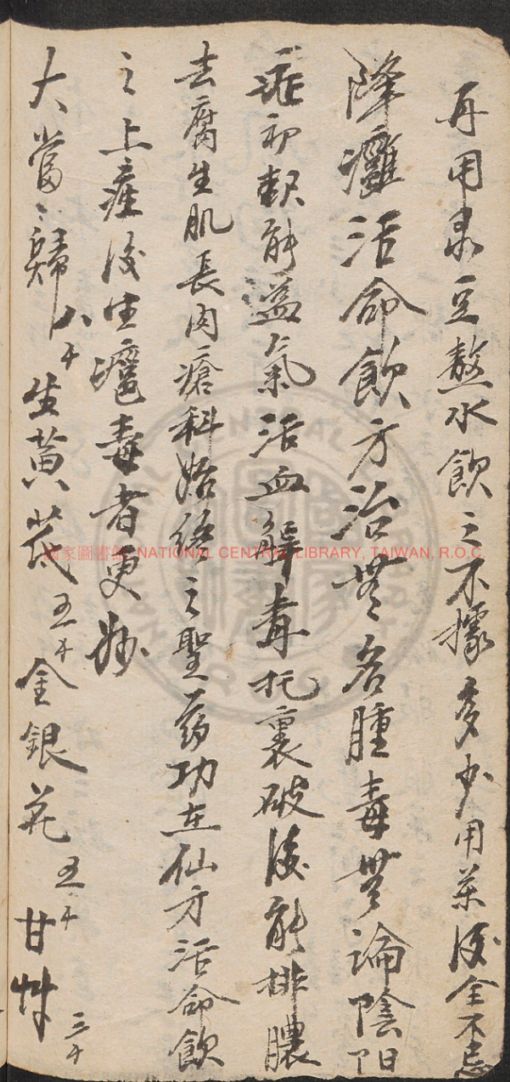 再用菉豆熬水飲之不據多少用葯後全不忌
降灕活命飲方治無名腫毒無論陰陽
症初起能溢氣活血解毒托裏破後能排膿
去腐生肌長肉瘡科始終之聖葯功在仙方活命飲
之上症後生毒者更妙
大當歸八千生黃芪五千金銀花五千甘艸三千
國家圖書館 NATIONAL CENTRAL LIBRARY, TAIWAN, R.O.C.